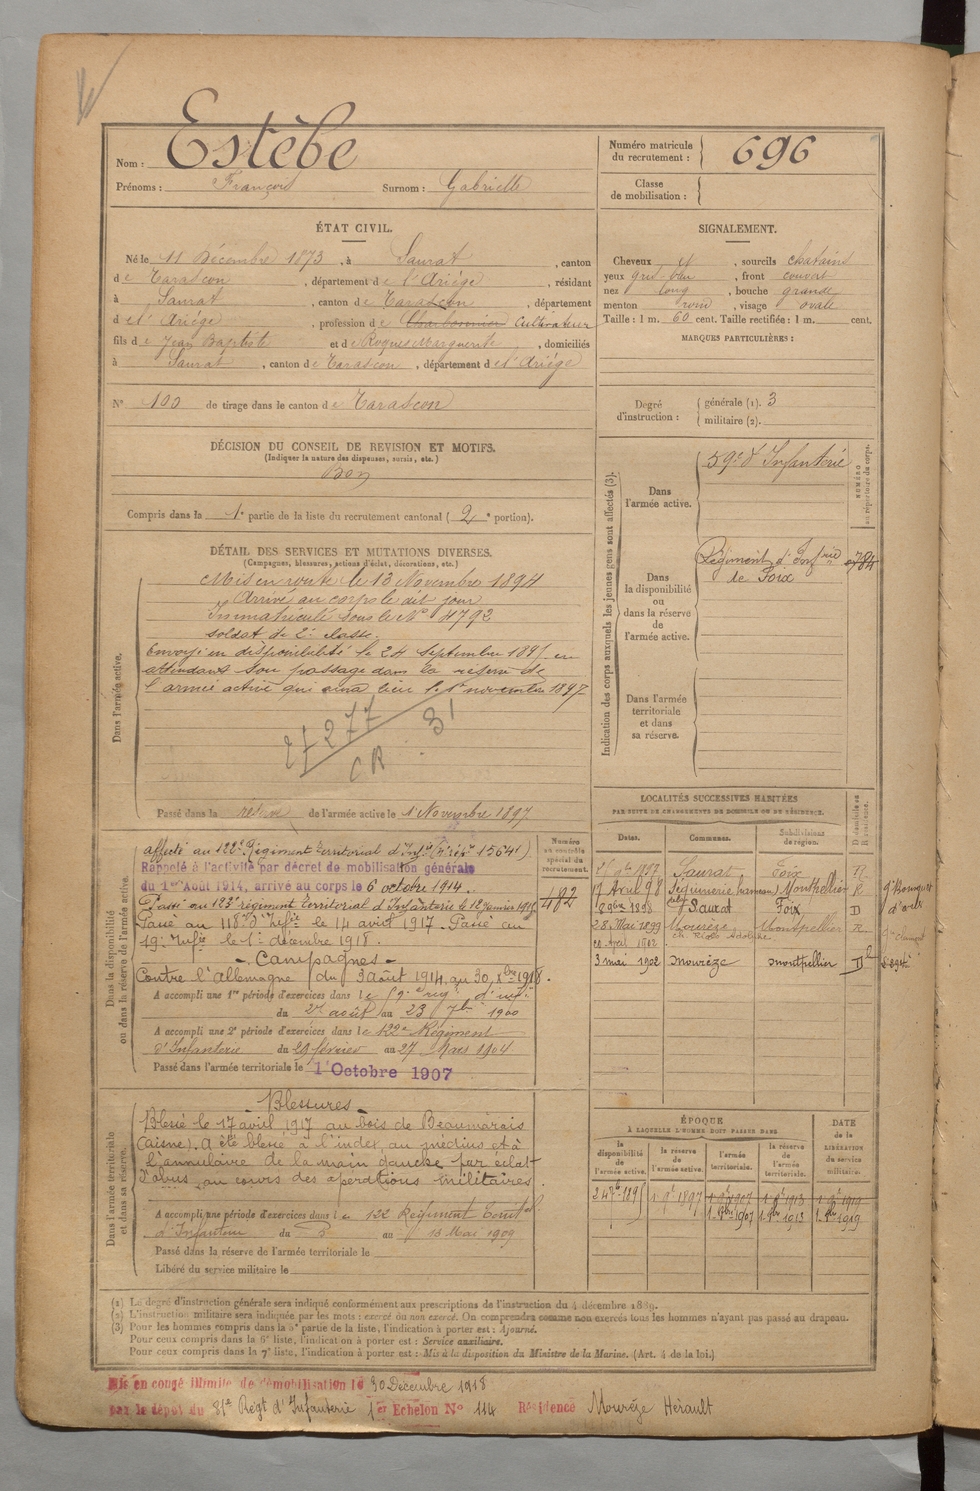 Nom : Estèbe
Prénoms : François Surnom : Gabrielle
Numéro matricule du recrutement : 696
Classe de mobilisation :
ÉTAT CIVIL.
Né le 11 Décembre 1873, à Saurat, canton
de Tarascon, département de l'Ariège, résidant
à Saurat, canton de Tarascon, département
de l'Ariège, profession de Charbonnier Cultivateur
fils de Jean Baptiste et de Roques Marguerite, domiciliés
à Saurat, canton de Tarascon, département de l'Ariège
N° 100 de tirage dans le canton de Tarascon
SIGNALEMENT.
Cheveux et, sourcils chatains
yeux gris-bleu, front couvert
nez long, bouche grande
menton rond, visage ovale
Taille : 1 m. 60 cent. Taille rectifiée : 1 m. cent.
MARQUES PARTICULIÈRES :
Degré d'instruction : générale (1). 3
militaire (2).
DÉCISION DU CONSEIL DE REVISION ET MOTIFS.
(Indiquer la nature des dispenses, sursis, etc.)
Bon
Compris dans la 1e partie de la liste du recrutement cantonal (2e portion).
DÉTAIL DES SERVICES ET MUTATIONS DIVERSES.
(Campagnes, blessures, actions d'éclat, décorations, etc.)
Dans l'armée active.
Mis en route le 13 Novembre 1894
Arrivé au corps le dit jour
Immatriculé sous le N° 4792
soldat de 2e classe.
Envoyé en disponibilité le 24 Septembre 1895 en
attendant son passage dans la réserve de
l'armée active qui aura lieu le 1er novembre 1897
CR
Passé dans la réserve de l'armée active le 1er Novembre 1897
Indication des corps auxquels les jeunes gens sont affectés (3).
NUMÉRO au répertoire du corps.
Dans l'armée active.
59e d'Infanterie
Dans la disponibilité ou dans la réserve de l'armée active.
Régiment d'Infrie de Foix 784
Dans l'armée territoriale et dans sa réserve.
Dans la disponibilité ou dans la réserve de l'armée active.
Numéro au contrôle spécial du recrutement.
482
affecté au 122e Régiment territorial d'Infie (n° rép. 1564)
Rappelé à l'activité par décret de mobilisation générale
du 1er Août 1914, arrivé au corps le 6 octobre 1914.
Passé au 123e régiment territorial d'Infanterie le 12 janvier 1915
Passé au 118e d'Infie le 14 avril 1917. Passé au
19e Infie le 1er décembre 1918.
- Campagnes -
Contre l'Allemagne du 3 août 1914 au 30 Xbre 1918.
A accompli une 1re période d'exercices dans le 59e rég. d'inf.
du 27 août au 23 7bre 1900
A accompli une 2e période d'exercices dans le 122e Régiment
d'Infanterie du 29 février au 27 Mars 1904
Passé dans l'armée territoriale le 1 Octobre 1907
LOCALITÉS SUCCESSIVES HABITÉES
PAR SUITE DE CHANGEMENTS DE DOMICILE OU DE RÉSIDENCE.
Dates. Communes. Subdivisions de région. D domicile ou R résidence.
1897 Saurat Foix R
17 Avril 98 Montpellier R
8 9bre 1898 Saurat Foix D
28 Mai 1899 Mourèze Montpellier R
20 Avril 1902
3 mai 1902 Mourèze Montpellier D
Dans l'armée territoriale et dans sa réserve.
- Blessures -
Blessé le 17 avril 1917 au bois de Beaumarais
(Aisne). A été blessé à l'index, au médius et à
l'annulaire de la main gauche par éclat
d'obus au cours des opérations militaires.
A accompli une période d'exercices dans le 122e Régiment Territ
d'Infanterie du 5 au 13 Mai 1909
Passé dans la réserve de l'armée territoriale le
Libéré du service militaire le
ÉPOQUE
À LAQUELLE L'HOMME DOIT PASSER DANS
la disponibilité de l'armée active. la réserve de l'armée active. l'armée territoriale. la réserve de l'armée territoriale.
DATE de la LIBÉRATION du service militaire.
24 7bre 1895 1 9bre 1897 1 9bre 1907 1 9bre 1913 1 9bre 1919
1 8bre 1907 1 8bre 1913 1 8bre 1919
(1) Le degré d'instruction générale sera indiqué conformément aux prescriptions de l'instruction du 4 décembre 1889.
(2) L'instruction militaire sera indiquée par les mots : exercé ou non exercé. On comprendra comme non exercés tous les hommes n'ayant pas passé au drapeau.
(3) Pour les hommes compris dans la 5e partie de la liste, l'indication à porter est : Ajourné.
Pour ceux compris dans la 6e liste, l'indication à porter est : Service auxiliaire.
Pour ceux compris dans la 7e liste, l'indication à porter est : Mis à la disposition du Ministre de la Marine. (Art. 4 de la loi.)
Mis en congé illimité de démobilisation le 30 Décembre 1918
par le dépôt du 81e Régt d'Infanterie 1er Echelon N° 114 Résidence Mourèze Hérault